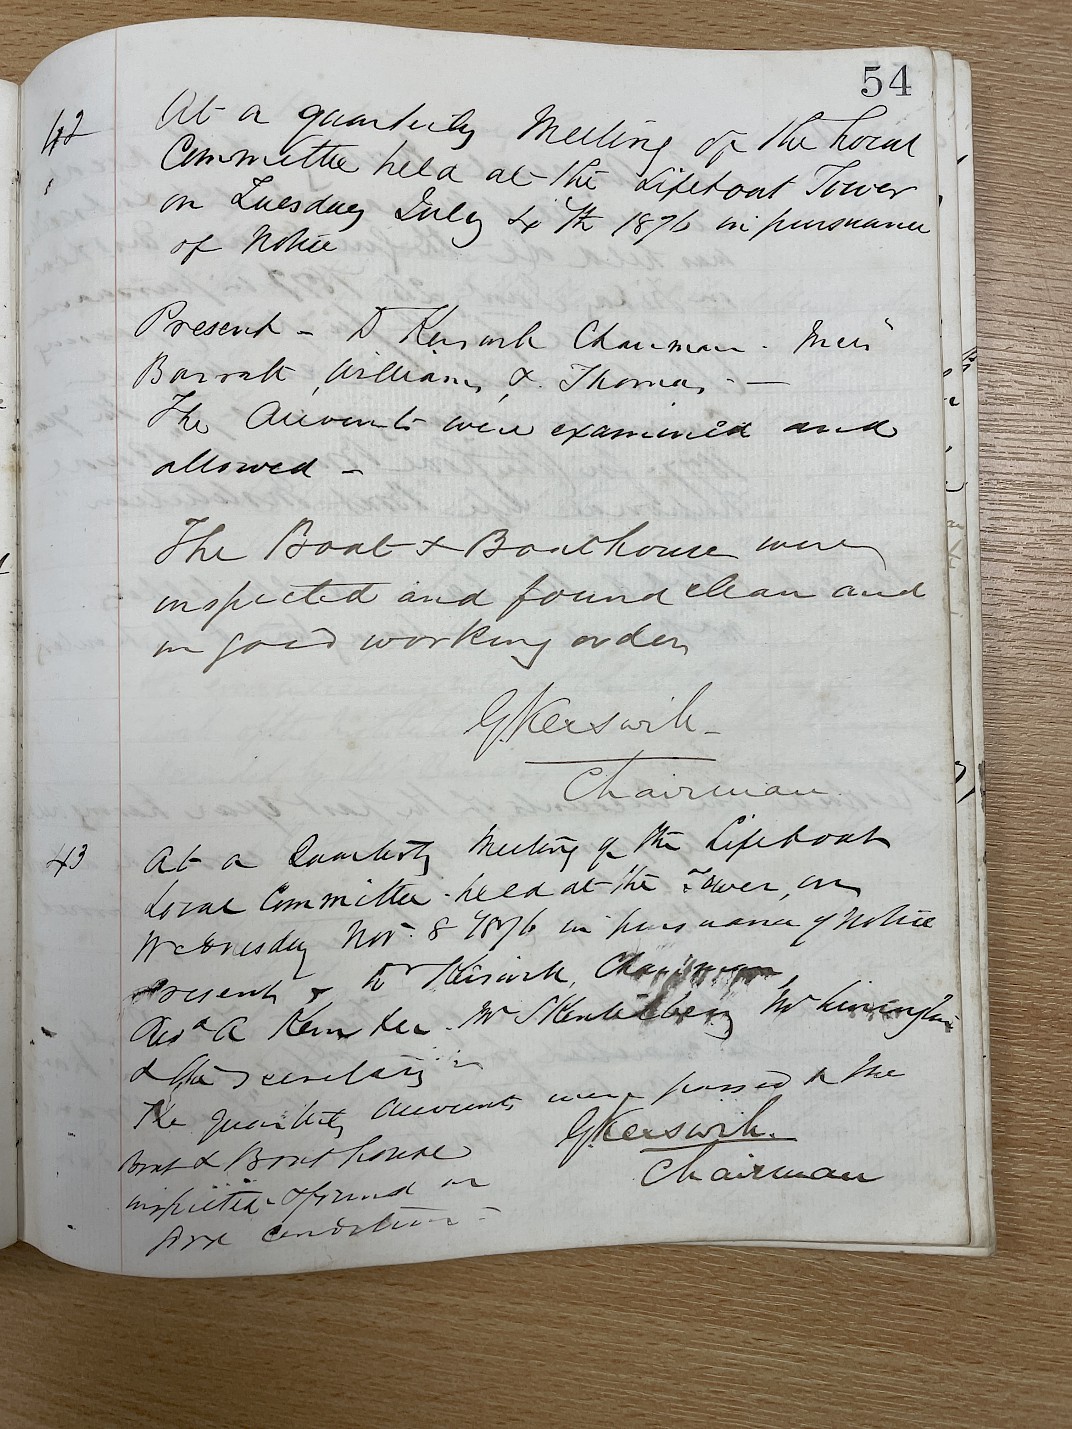 54
42
At a quarterly Meeting of the Local
Committee held at the Lifeboat Tower
on Tuesday July 4th 1876 in pursuance
of Notice
Present – Dr Kerswill Chairman. Messrs
Barratt, Williams, & Thomas. —
The Accounts were examined and
allowed –
The Boat & Boathouse were
inspected and found clean and
in good working order
G Kerswill
Chairman
43
At a Quarterly Meeting of the Lifeboat
Local Committee held at the Tower, on
Wednesday Nov. 8 1876 in pursuance of Notice
Present, Dr Kerswill, Chairman
Revd A Kempe Mr Mr Livingston
& the Secretary
The Quarterly Accounts were passed & the
Boat & Boathouse
inspected & found in
condition
G Kerswill.
Chairman